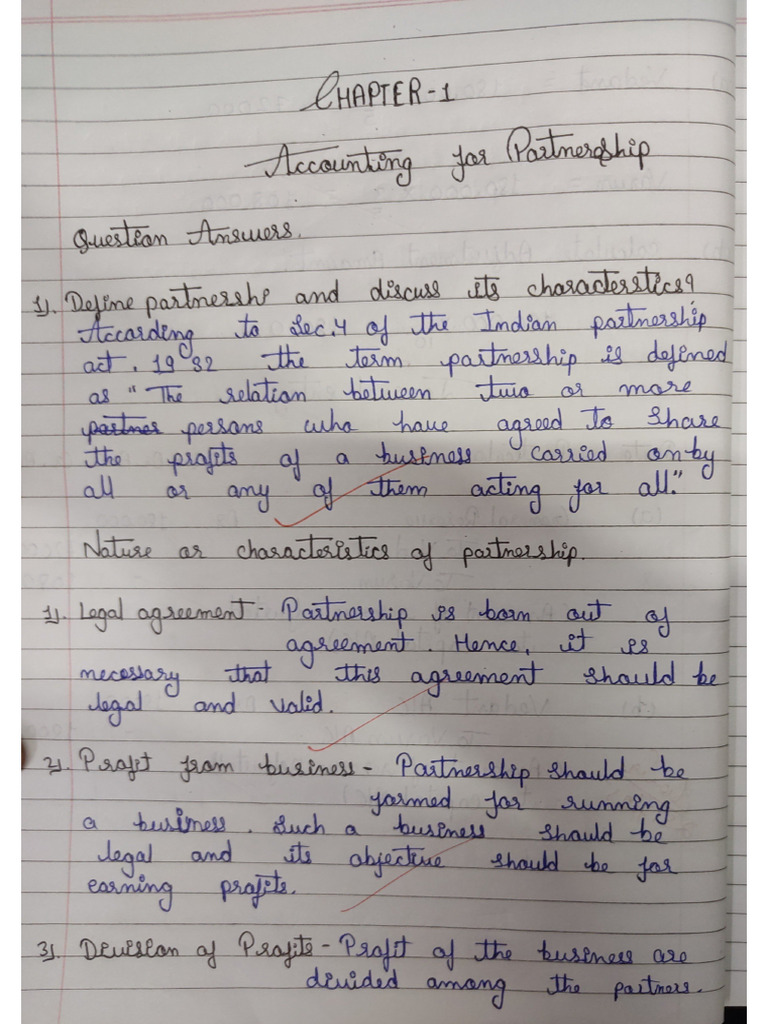 CHAPTER-1
Accounting for Partnership
Question Answers.
1). Define partnershp and discuss its characterstics?
According to Sec.4 of the Indian partnership
act. 1932 the term partnership is defined
as "The relation between two or more
partner persons who have agreed to share
the profits of a business carried on by
all or any of them acting for all."
Nature or characteristics of partnership.
1). Legal agreement - Partnership is born out of
agreement. Hence, it is
necessary that this agreement should be
legal and valid.
2). Profit from business - Partnership should be
formed for running
a business. Such a business should be
legal and its objective should be for
earning profits.
3). Division of Profits - Profit of the business are
divided among the partners.